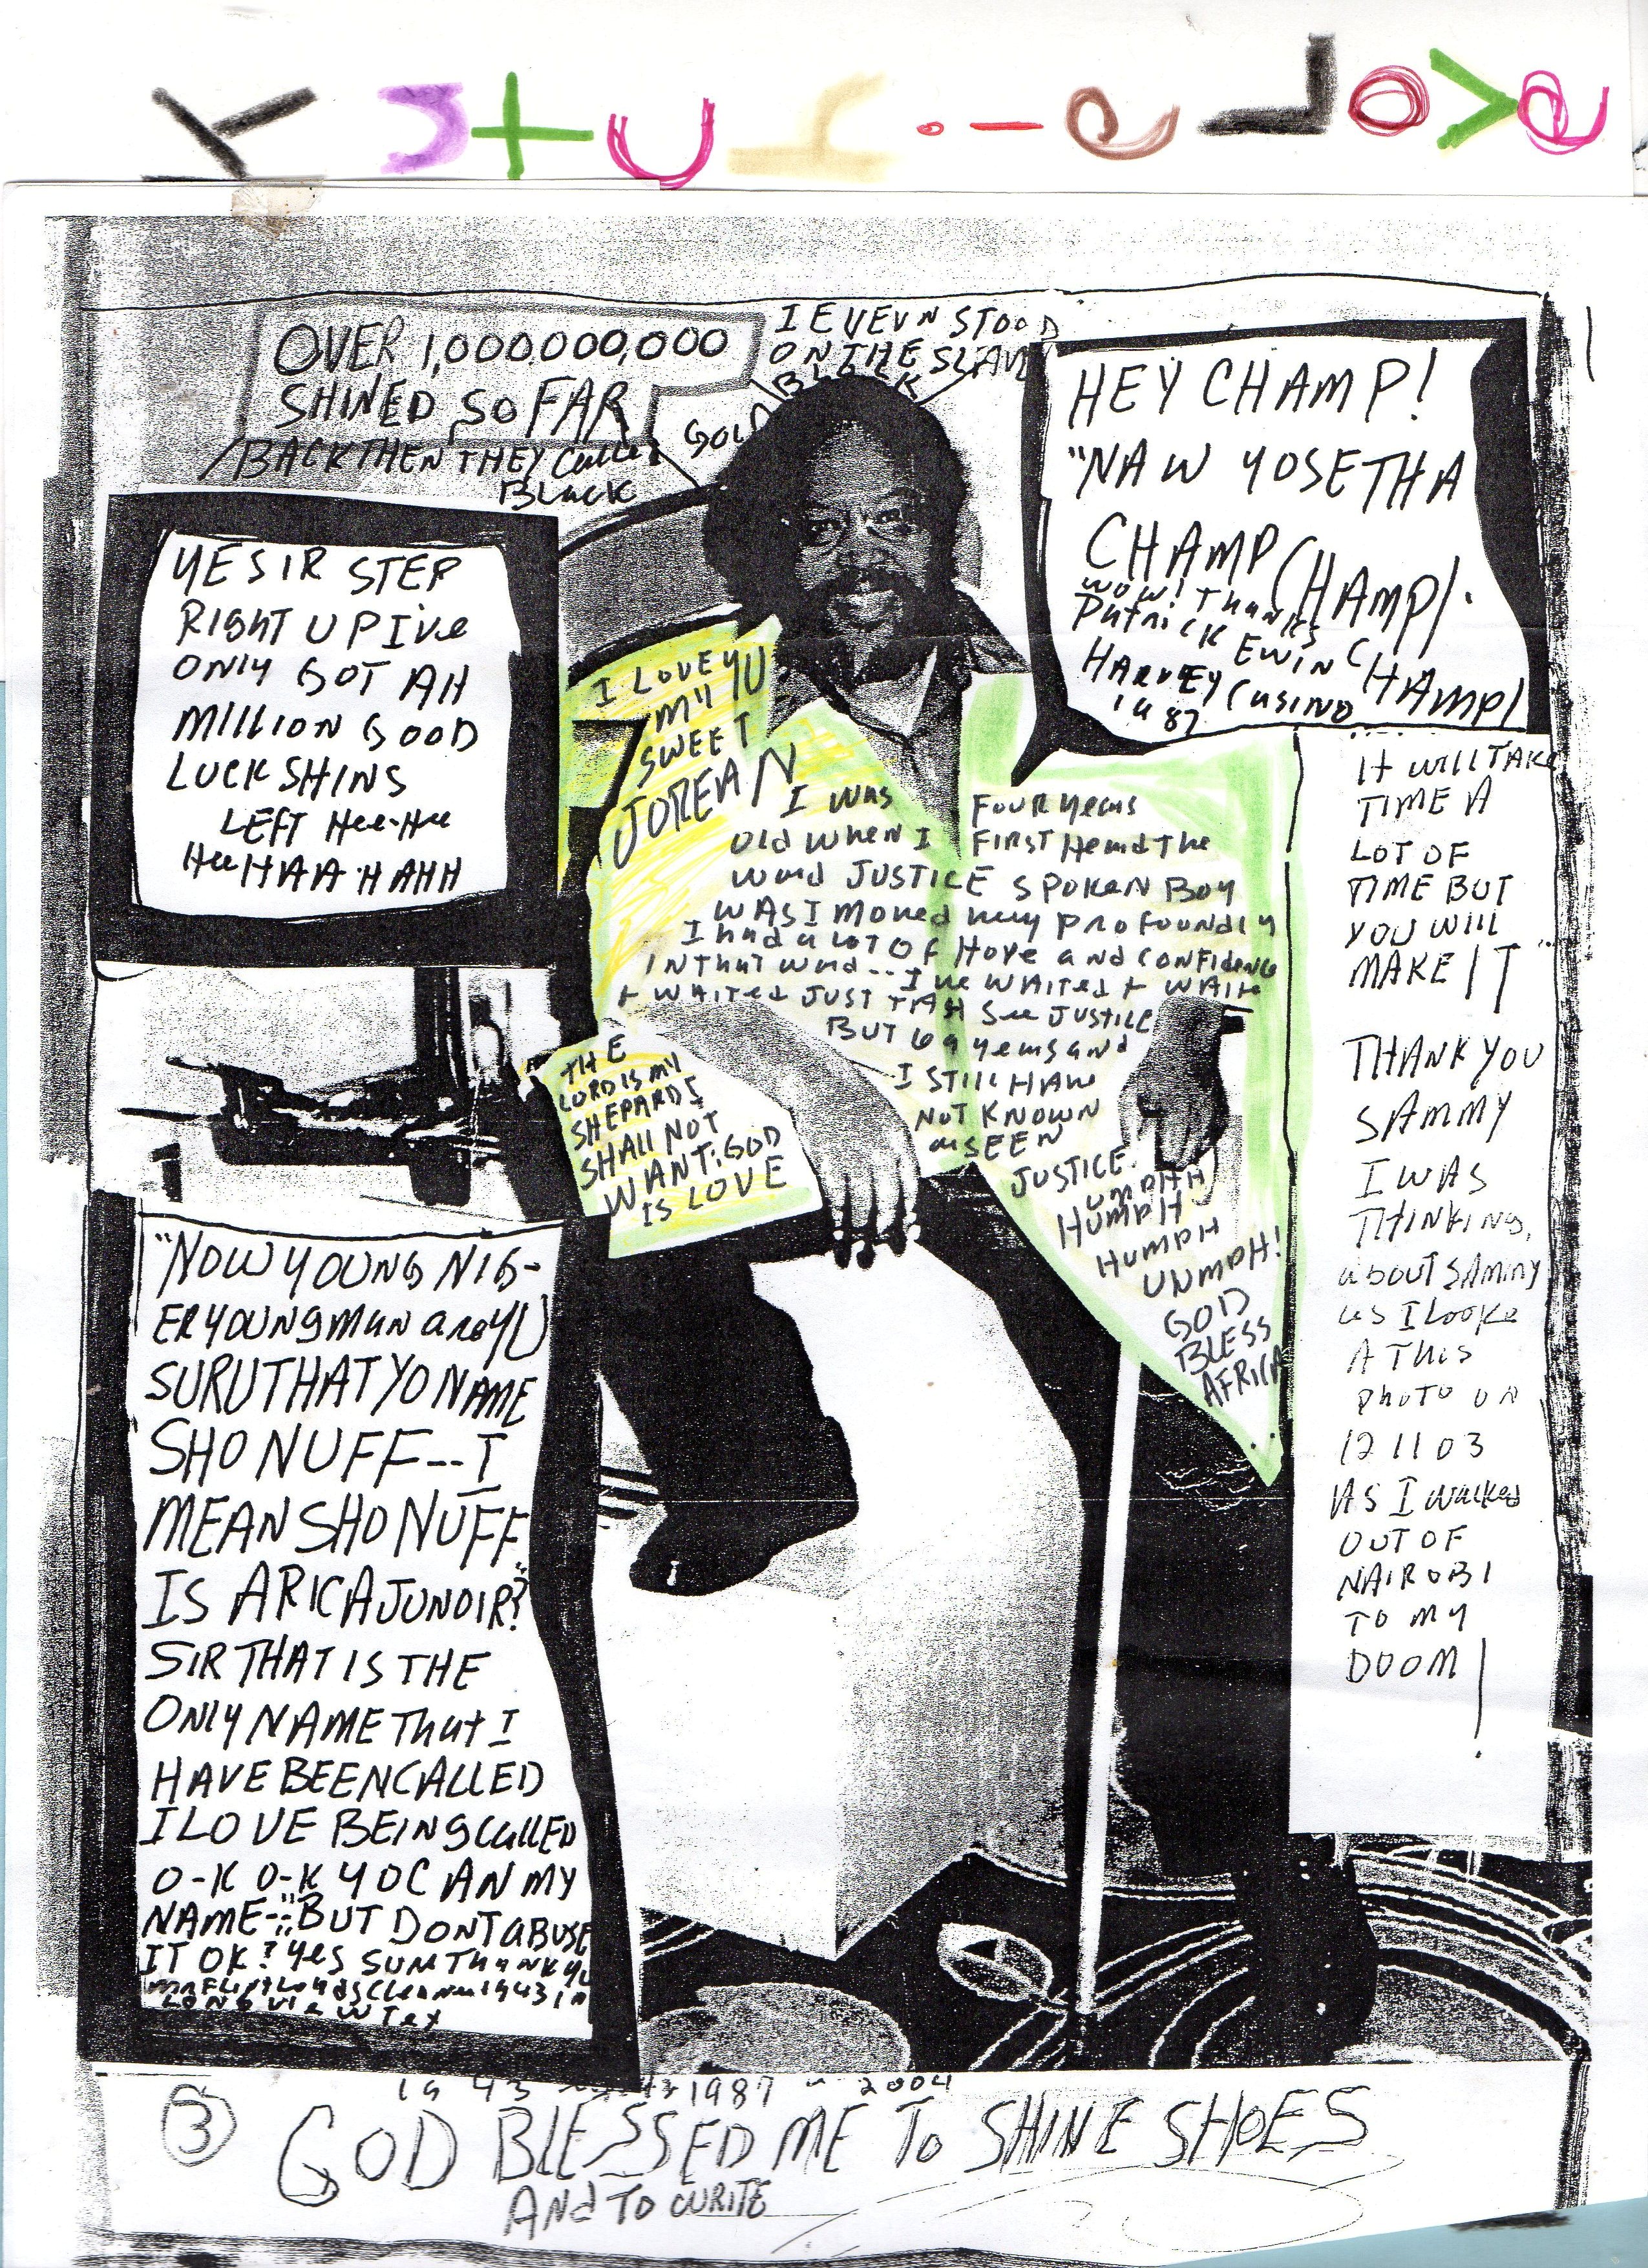 Love
OVER 1,000,000,000
SHINED SO FAR
BACK THEN THEY Called
BLACK
GOLD
I EVEVN STOOD
ON THE SLAVE
BLOCK
HEY CHAMP!
"NAW YOSE THA
CHAMP CHAMP!.
WOW! Thanks
PATRICK EWIN CHAMP!
HARVEY CUSINO
1987
YE SIR STEP
RIGHT UP I'VE
ONLY GOT AH
MILLION GOOD
LUCK SHINS
LEFT Hee-Hee
Hee HAA-HAHH
I LOVE YU
MY
SWEET
JOREAN
I WAS FOUR years
Old WHEN I FIRST Heard The
Word JUSTICE SPOKEN BOY
WAS I MOVED very PROFOUNDLY
I had a LOT OF HOPE and CONFIDENCE
IN That Word -- I've WAITED + WAITe
+ WAITED JUST TAH See JUSTICE
BUT 69 years and
I STILL HAVE
NOT KNOWN
or SEEN
JUSTICE.
UMPHH
HUMPH
HUMPH
UNMPH!
GOD
BLESS
AFRICA
THE
LORD IS MY
SHEPARD I
SHALL NOT
WANT: GOD
IS LOVE
It WILL TAKE
TIME A
LOT OF
TIME BUT
YOU WILL
MAKE IT"
THANK YOU
SAMMY
I WAS
THINKING,
about SAMMY
as I LOOKe
A THIS
PHOTO ON
12 11 03
AS I walked
OUT OF
NAIROBI
TO MY
DOOM!
"NOW YOUNG NIG-
ER YOUNG MAN are YU
SURU THAT YO NAME
SHO NUFF -- I
MEAN SHO NUFF
IS ARICA JUNOIR?"
SIR THAT IS THE
ONLY NAME That I
HAVE BEEN CALLED
I LOVE BEING CALLED
O-K O-K YO CAN MY
NAME -- "BUT DONT ABUSE
IT OK? Yes SURE Thank YU
1943 in
LONGVIEW Tex
1943 1987 - 2004
3
GOD BLESSED ME TO SHINE SHOES
AND TO WRITE